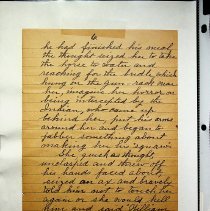 6
he had finished his meal,
the thought seized her to take
the horse to water and
reaching for the bridle which
hung on the gun-rack near
her, imagine her horror on
being intercepted by the
Indian, who came up
behind her, put his arms
around her and began to
jabber something about
making her his squaw.
She quick as thought,
unclasped and threw off
his hands, faced about,
seized an ax and bravely
told him not to touch her
again or she would kill
him and said William